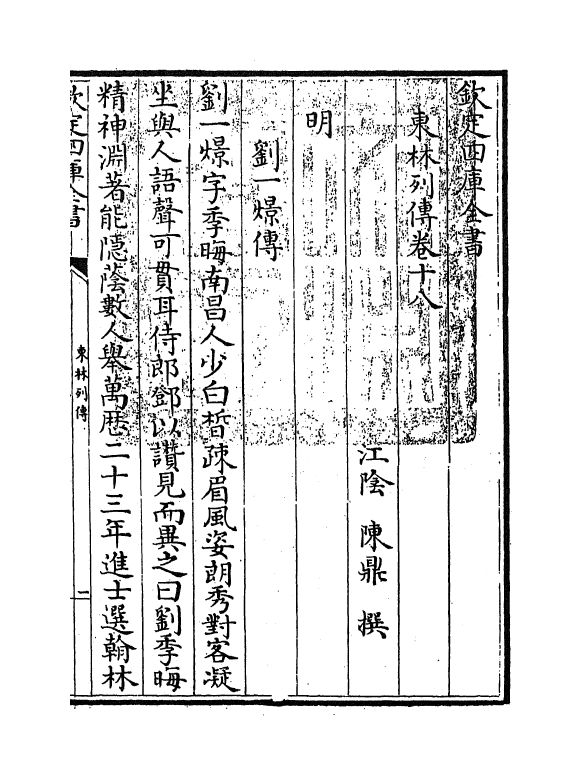 欽定四庫全書
東林列傳卷十八
江陰 陳鼎 撰
明
劉一燝傳
劉一燝字季晦南昌人少白皙疎眉風姿朗秀對客凝
坐與人語聲可貫耳侍郎鄧以讚見而異之曰劉季晦
精神淵著能隠蔭數人舉萬厯二十三年進士選翰林
欽定四庫全書
東林列傳
一